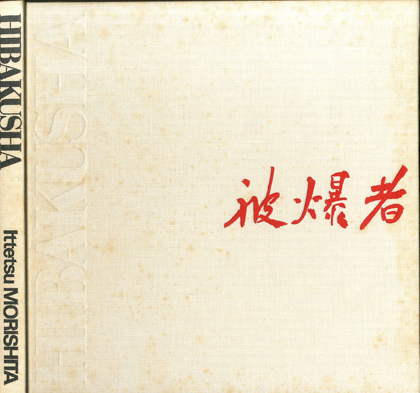 HIBAKUSHA
Ittetsu MORISHITA
HIBAKUSHA
被爆者